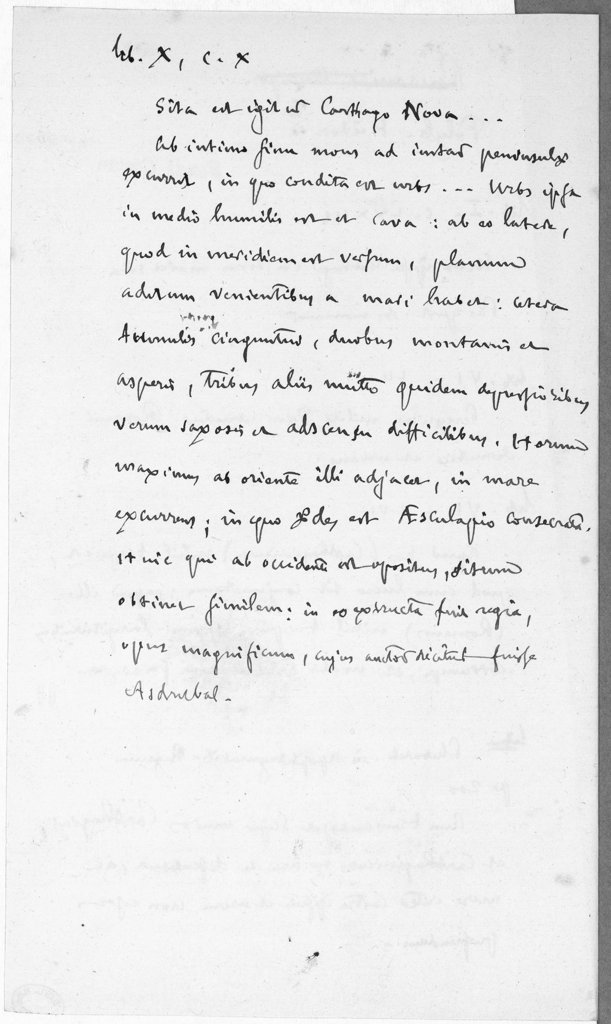 lib. X, c. X
Sita est igitur Carthago Nova ...
Ab intimo sinu mons ad instar peninsulæ
excurrit, in quo condita est urbs ... Urbs ipsa
in medio humilis est et cava : ab eo latere,
quod in meridiem est versum, planum
aditum venientibus a mari habet : cetera
tumulis cinguntur, duobus montanis et
asperis, tribus aliis multo quidem depressioribus
verum saxosis et adscensu difficilibus. Horum
maximus ab oriente illi adjacet, in mare
excurrens ; in quo ædes est Æsculapio consecrata.
Huic qui ab occidente est opositus, situm
obtinet similem : in eo exstructa fuit regia,
opus magnificum, cujus auctor dicitur fuisse
Asdrubal.